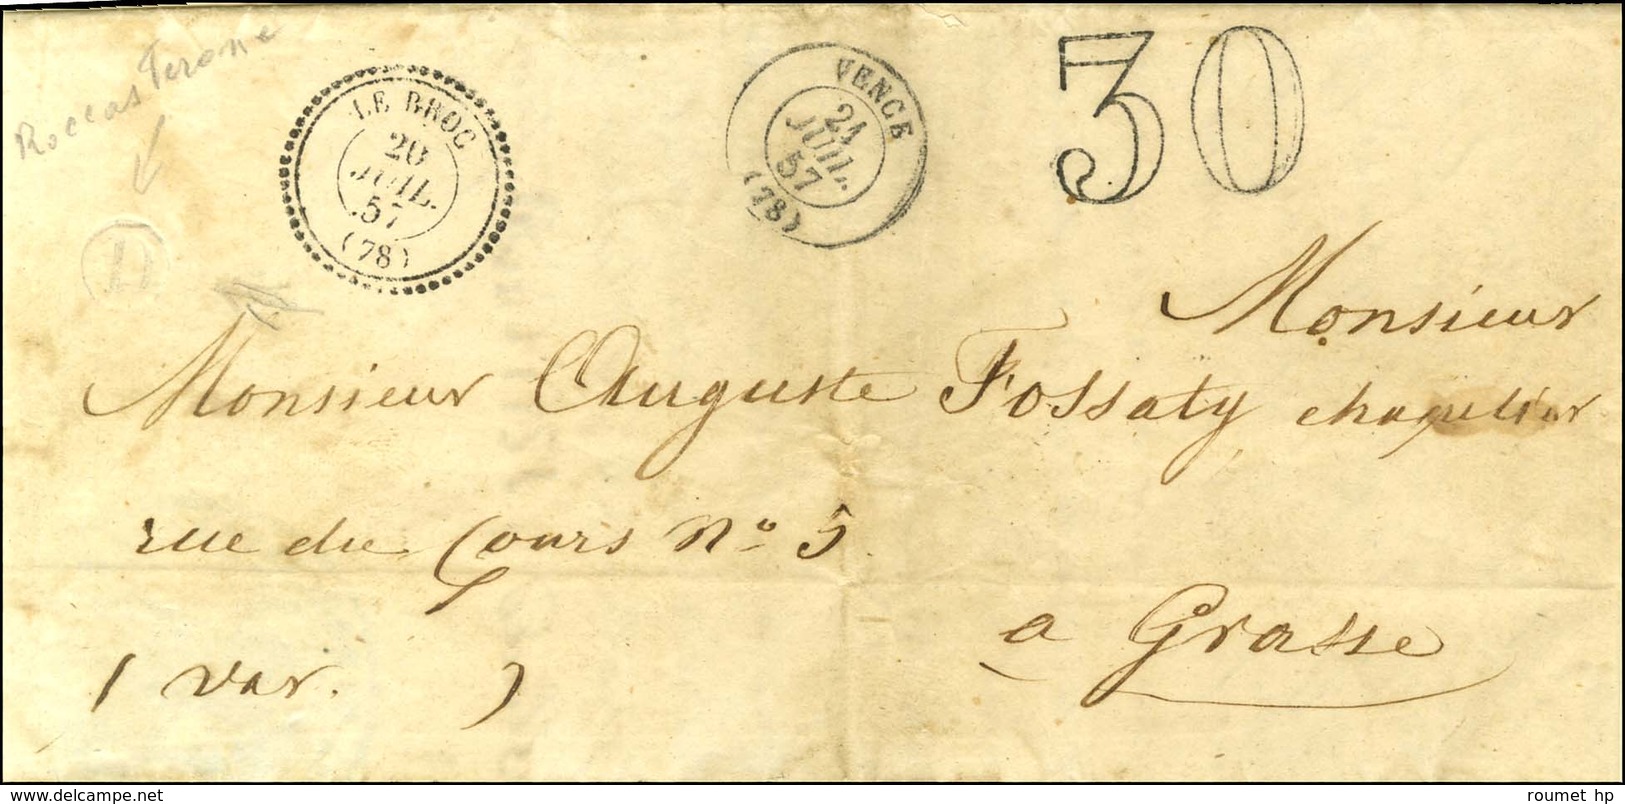 Roccasterone
LE BROC
20
JUIL.
57
(78)
VENCE
21
JUIL.
57
(78)
30
D
Monsieur
Monsieur Auguste Fossaty chapelier
rue du Cours No 5
a Grasse
( var. )
www.delcampe.net
roumet hp